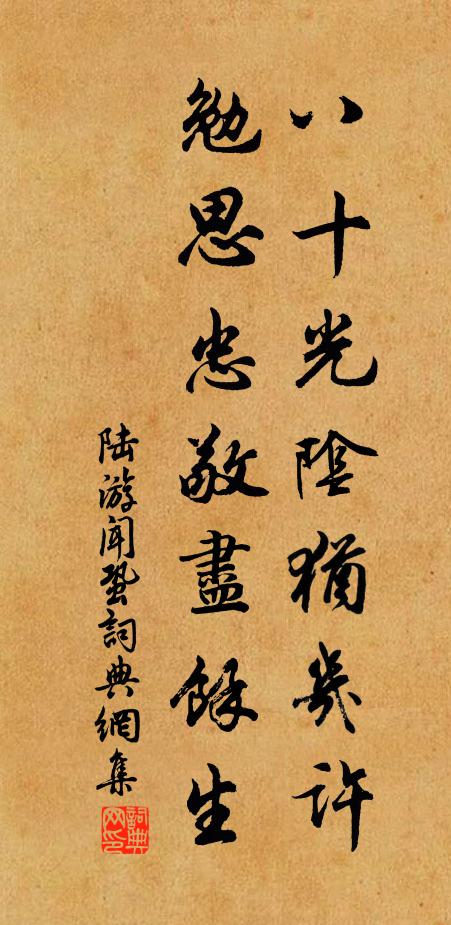 八十光陰猶幾許
勉思忠敬盡餘生
陆游闻蛩詞典網集
詞典網印